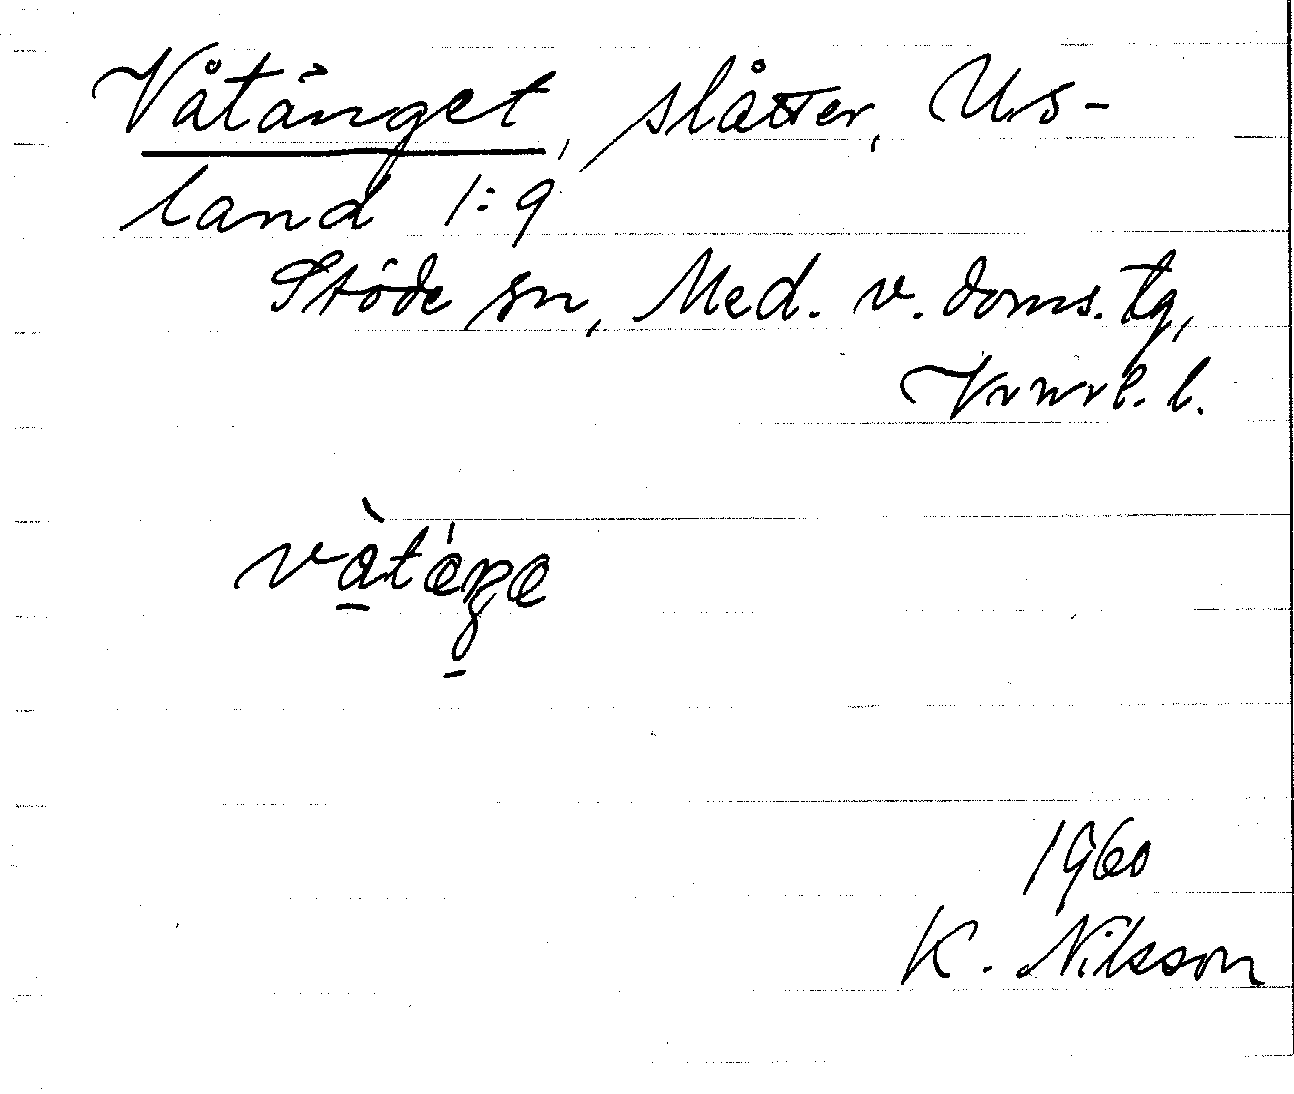 Våtänget, slåtter, Us-
land 1:9
Stöde sn, Med. v. doms. tg,
Vrnrl. l.
1960
K. Nilsson